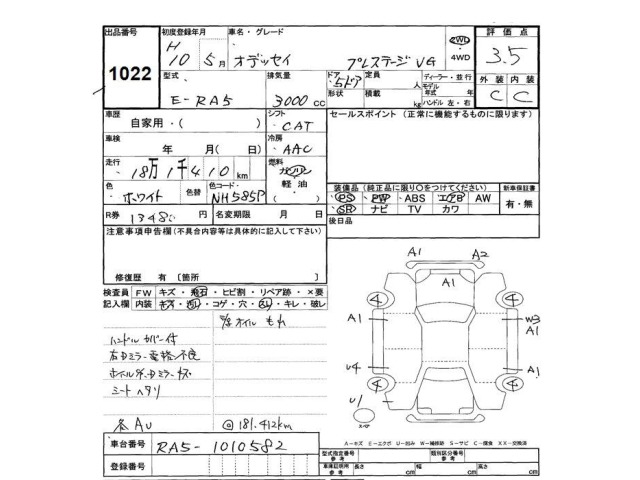 出品番号
1022
初度登録年月
H 10 5月
車名・グレード
オデッセイ プレステージ VG
2WD
・4WD
評価点
3.5
外装 内装
C C
型式
E-RA5
排気量
3000cc
ドア・形状
5ドア
定員
人
積載
kg
ディーラー・並行
モデル年式 年式
ハンドル 左・右
車歴
自家用・( )
シフト
CAT
セールスポイント (正常に機能するものに限ります)
車検
年 月( 日)
冷房
AAC
走行
18万1千410km
燃料
ガソリン
軽油
( )
色
ホワイト
色替
色コード
NH585P
装備品(純正品に限り○をつけてください)
PS・PW・ABS・エアB AW
SR ナビ TV カワ
新車保証書
有・無
R券
円
名変期限 月 日
後日品
注意事項申告欄(不具合内容等は具体的に記入して下さい)
修復歴 有〔箇所 〕
検査員記入欄
FW キズ・飛石・ヒビ割・リペア跡・×要
内装 キズ・汚れ・コゲ・穴・スレ・キレ・破レ
オイルもれ
ハンドルカバー付
右Dミラー電格不良
シートヘタリ
各AU
@181.412km
A1 A2
A1
4 4
A1 W3
A1
U4 A1
4 4
U1
スペア
A-キズ E-エクボ U-凹み W-補修跡 S-サビ C-腐食 XX-交換済
車台番号
RA5-1010582
登録番号
型式指定番号
参考
類別区分番号
参考
車庫証明用
参考
長さ cm 幅 cm 高さ cm